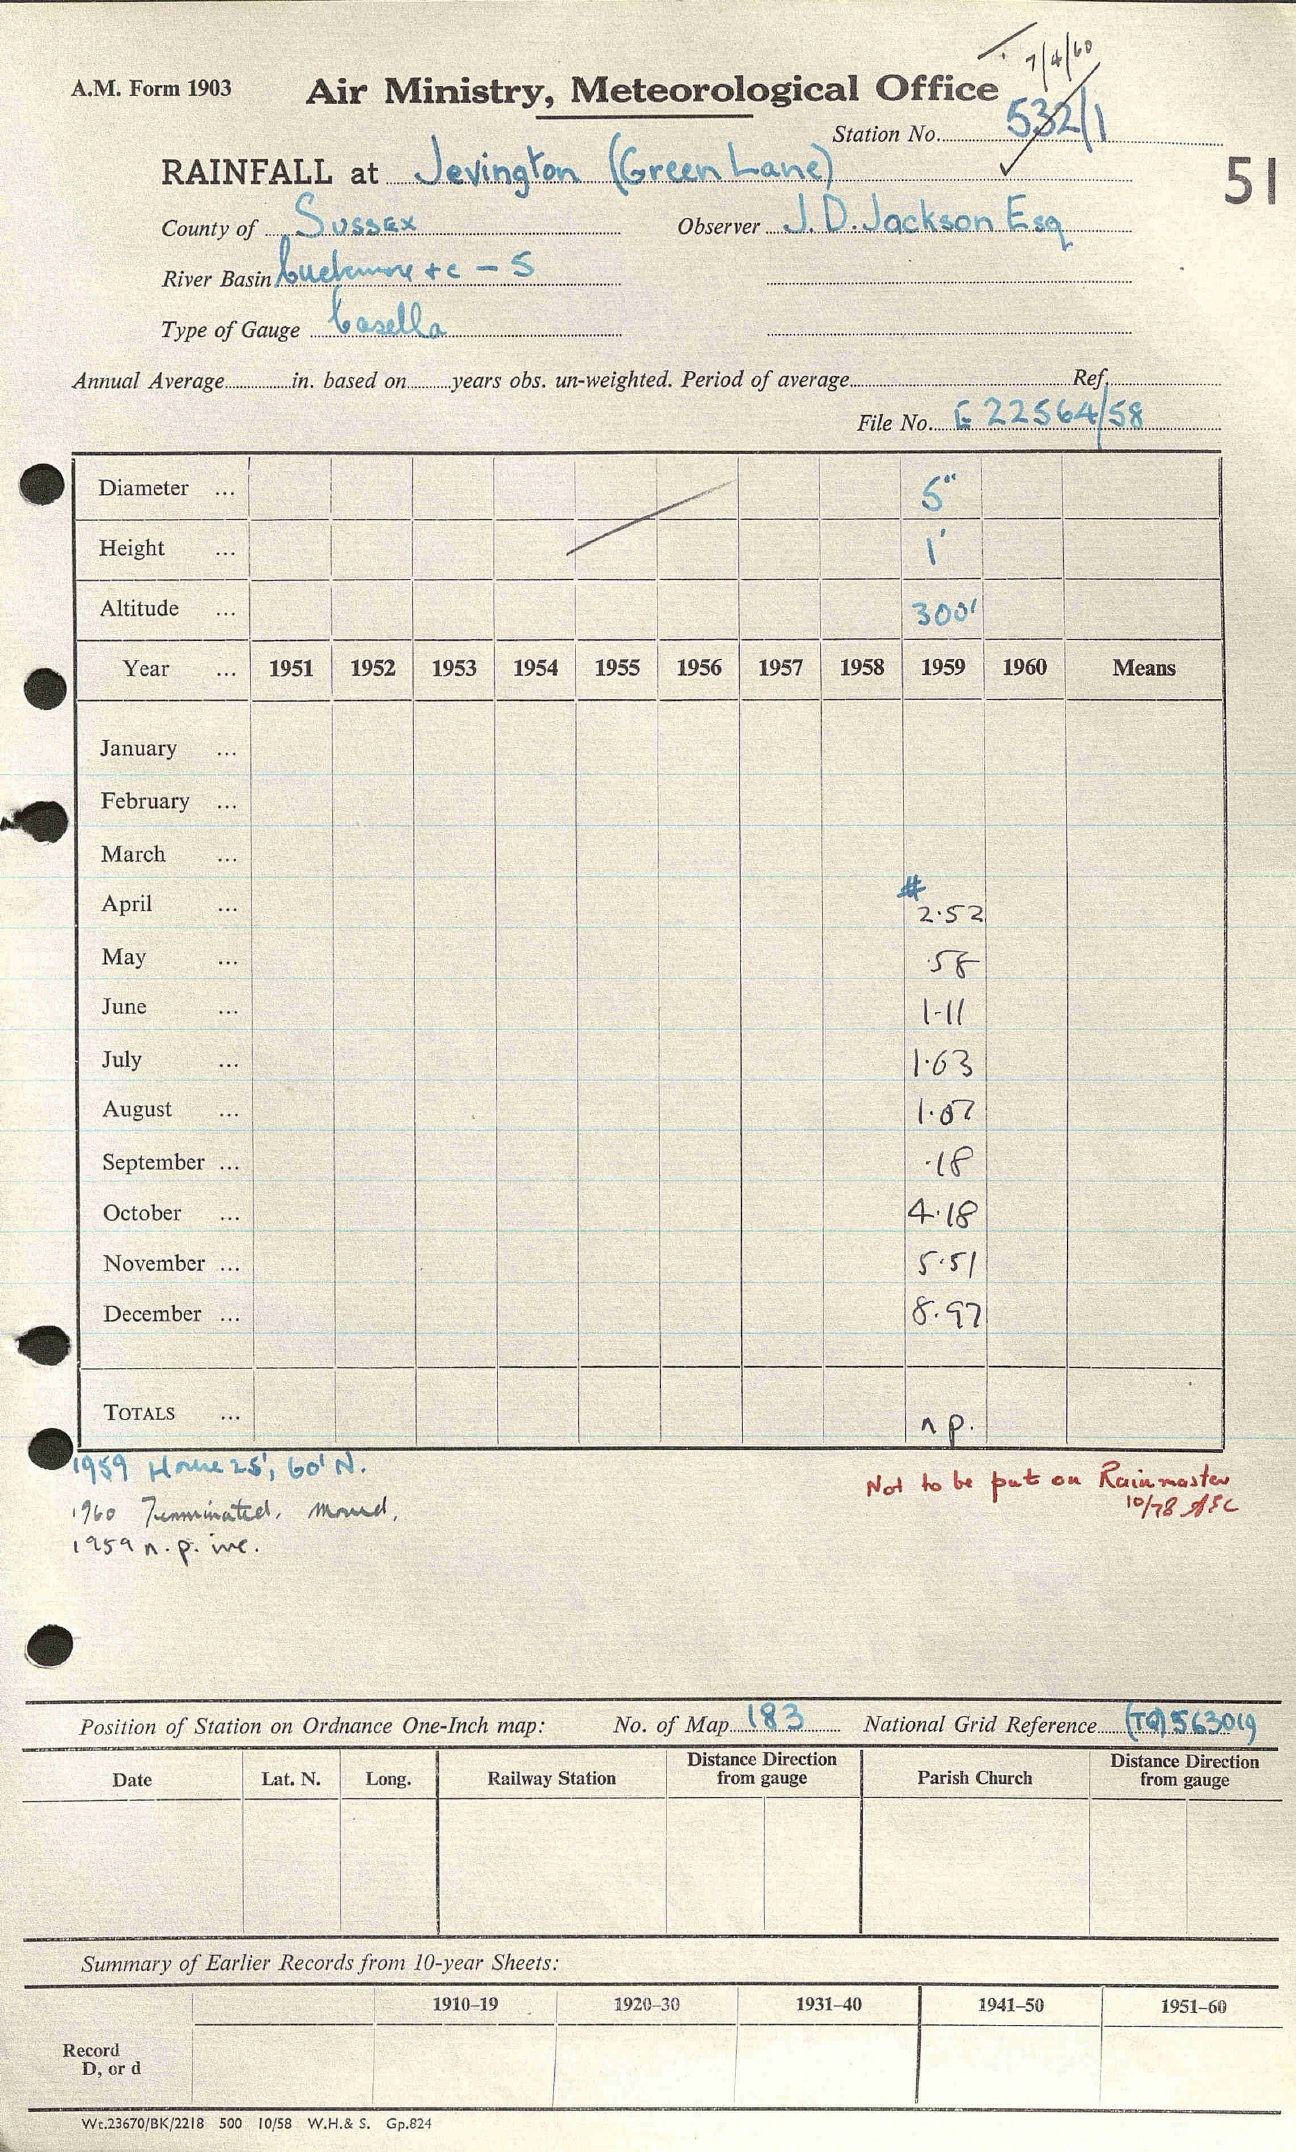 7/4/60
A.M. Form 1903 Air Ministry, Meteorological Office
Station No. 532/1
RAINFALL at Jevington (Green Lane) 51
County of Sussex Observer J. D. Jackson Esq
River Basin Cuckmere &c - S
Type of Gauge Casella
Annual Average in. based on years obs. un-weighted. Period of average Ref.
File No. E 22564/58
Diameter ... 5"
Height ... 1'
Altitude ... 300'
Year ... 1951 1952 1953 1954 1955 1956 1957 1958 1959 1960 Means
January ...
February ...
March ...
#
April ... 2.52
May ... .58
June ... 1.11
July ... 1.63
August ... 1.07
September ... .18
October ... 4.18
November ... 5.51
December ... 8.97
TOTALS ... n p.
1959 House 25', 60' N.
Not to be put on Rainmaster
10/78
1960 Terminated. Moved.
1959 n. p. inc.
Position of Station on Ordnance One-Inch map: No. of Map 183 National Grid Reference (TQ) 563019
Date Lat. N. Long. Railway Station Distance Direction from gauge Parish Church Distance Direction from gauge
Summary of Earlier Records from 10-year Sheets:
1910–19 1920–30 1931–40 1941–50 1951–60
Record
D, or d
Wt.23670/BK/2218 500 10/58 W.H.& S. Gp.824